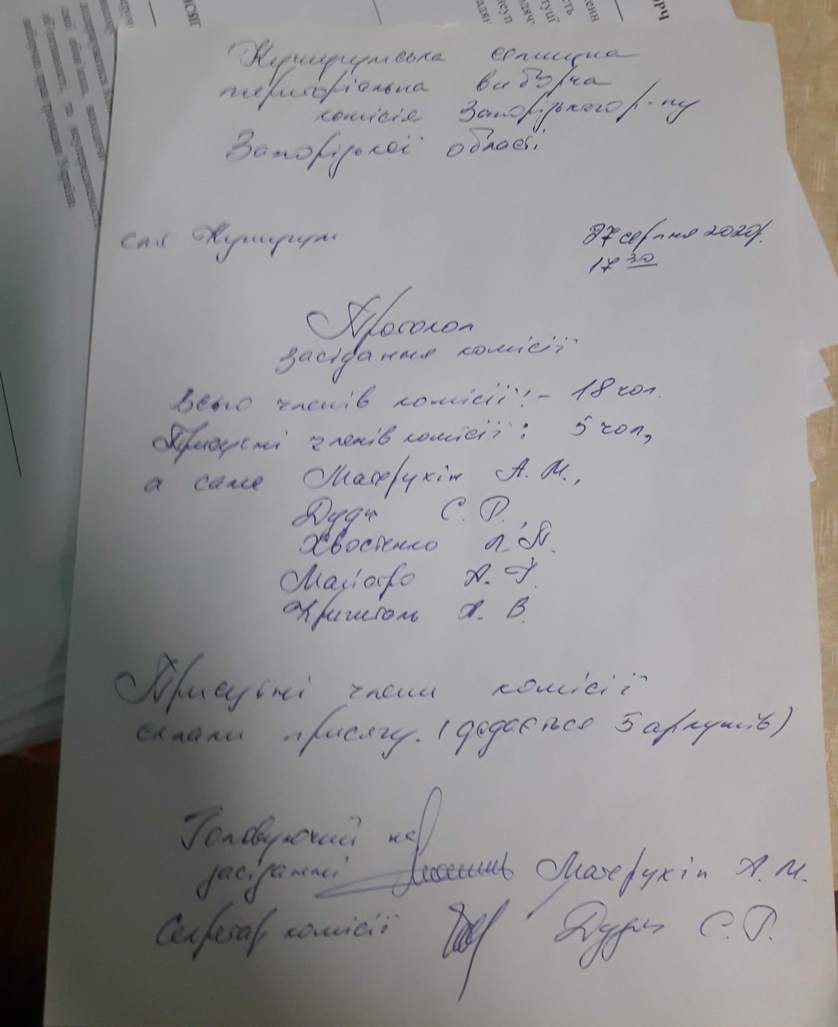 Кушугумська селищна
територіальна виборча
комісія Запорізького р-ну
Запорізької області
смт Кушугум
27 серпня 2020р.
17 30
Протокол
засідання комісії
Всього членів комісії: - 18 чол.
Присутні членів комісії: 5 чол,
а саме Мачерухін А. М.,
С. Г.
Хвостенко Л. П.
А. Г.
А. В.
Присутні члени комісії
склали присягу. (додається 5 аркушів)
Головуючий на
засіданні Мачерухін А. М.
Секретар комісії С. Г.